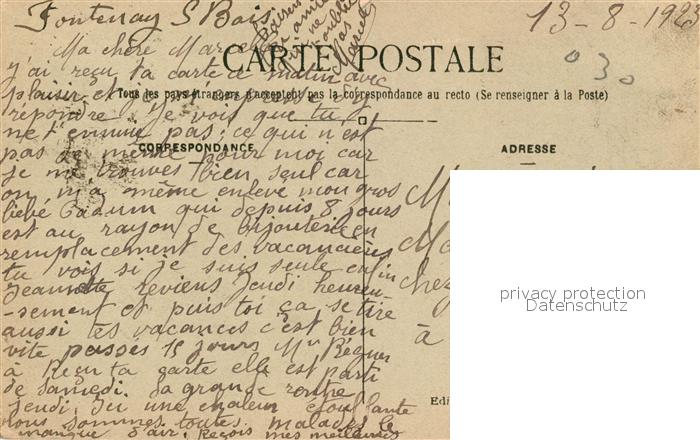 Fontenay S Bois 13-8-1923
Ma chère Marcelle
CARTE POSTALE
j'ai reçu ta carte ce matin avec
Tous les pays étrangers n'acceptent pas la correspondance au recto (Se renseigner à la Poste)
plaisir et je m'empresse d'y
répondre. Je vois que tu
ne t'ennuie pas; ce qui n'est
CORRESPONDANCE
ADRESSE
pas de même pour moi car
je me trouves bien seul car
on m'a même enlevé mon gros
bébé qui depuis 8 jours
est au rayon de bijouterie en
remplacement des vacancières
tu vois si je suis seule enfin
Jeannette reviens Jeudi heureu-
-sement et puis toi ça se tire
aussi tes vacances c'est bien
chez
à
vite passés 15 jours Mme
à Reçu ta carte elle est parti
de samedi. La grande rentre
Jeudi. Ici une chaleur étouffante
Edi
nous sommes toutes malades le
manque d'air. Reçois mes meilleurs
privacy protection
Datenschutz